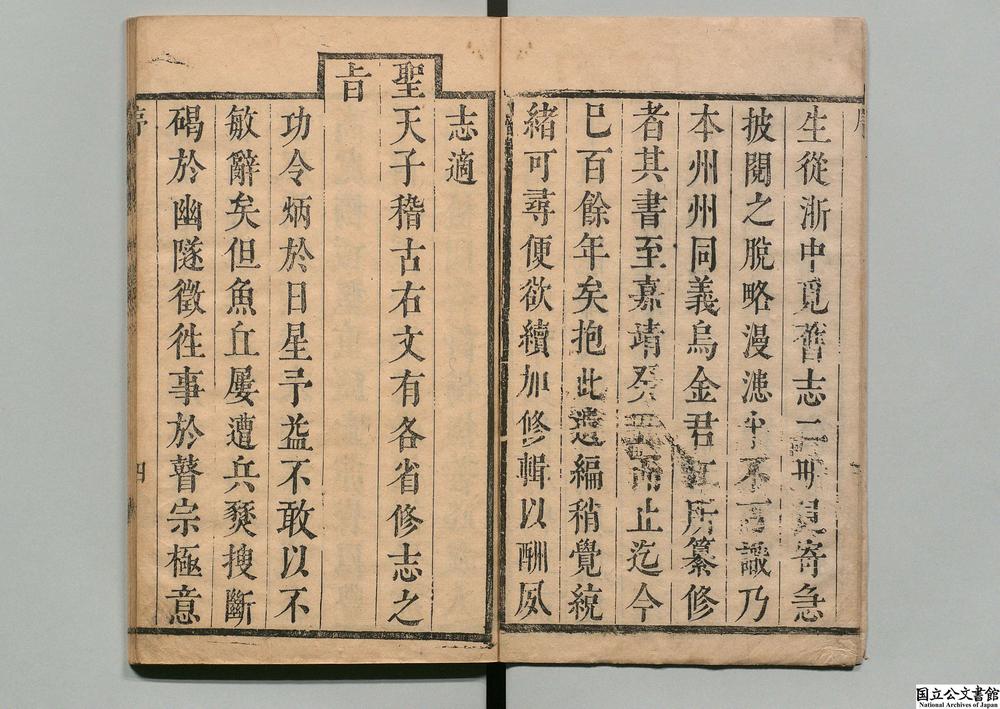 序
生從浙中覓舊志二冊見寄急
披閱之脫略漫漶半不可識乃
本州州同義烏金君江所纂修
者其書至嘉靖癸丑而止迄今
巳百餘年矣抱此遺編稍覺統
緒可尋便欲續加修輯以酬夙
志適
聖天子稽古右文有各省修志之
旨
功令炳於日星予益不敢以不
敏辭矣但魚丘屢遭兵燹搜斷
碣於幽隧徵徃事於瞽宗極意
序
四
国立公文書館
National Archives of Japan